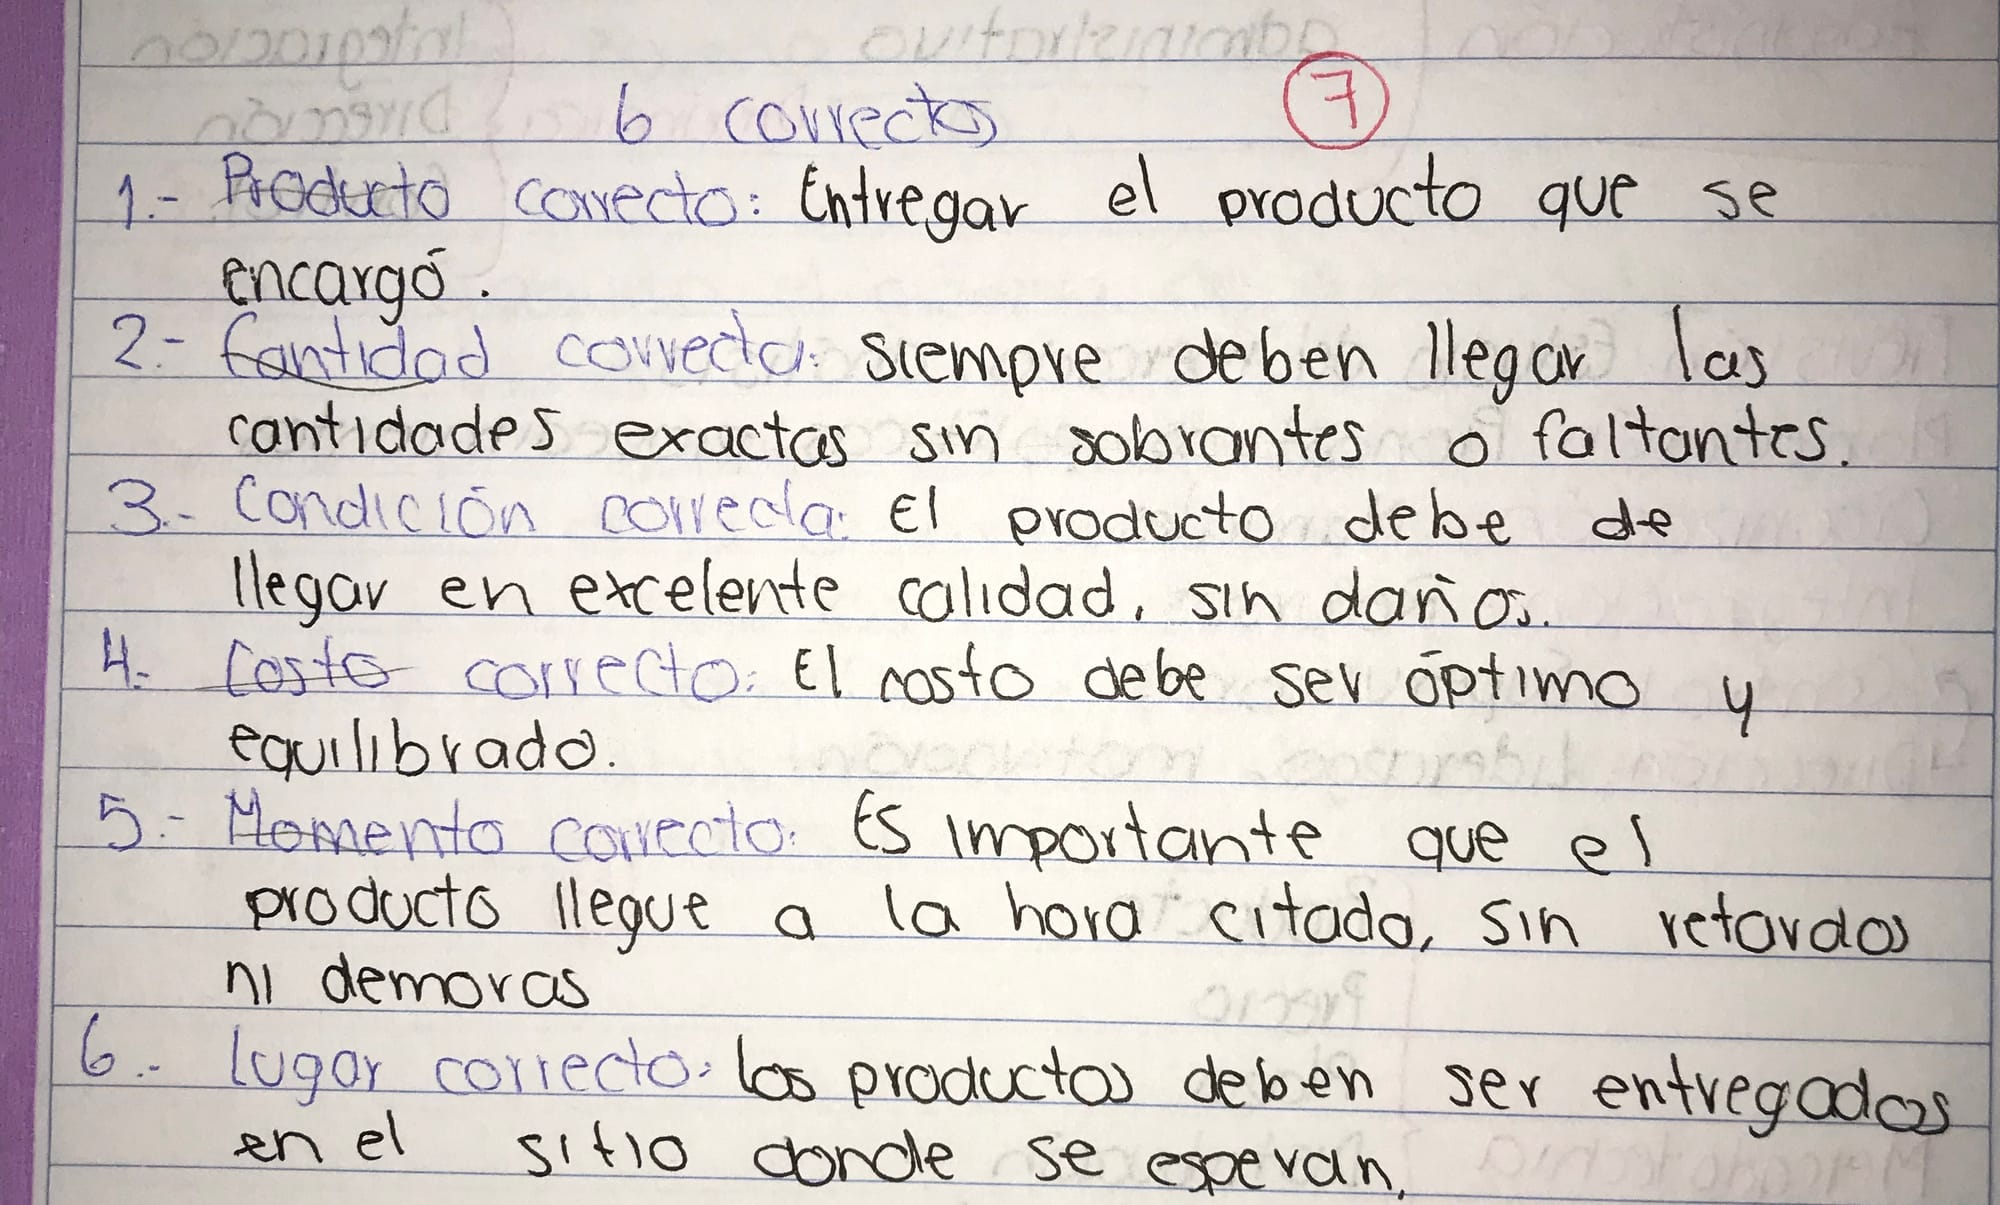 6 correctos 7
1.- Producto correcto: Entregar el producto que se
encargó.
2.- Cantidad correcta: Siempre deben llegar las
cantidades exactas sin sobrantes o faltantes.
3.- Condición correcta: El producto debe de
llegar en excelente calidad, sin daños.
4.- Costo correcto: El costo debe ser óptimo y
equilibrado.
5.- Momento correcto: Es importante que el
producto llegue a la hora citada, sin retardos
ni demoras
6.- Lugar correcto: los productos deben ser entregados
en el sitio donde se esperan.